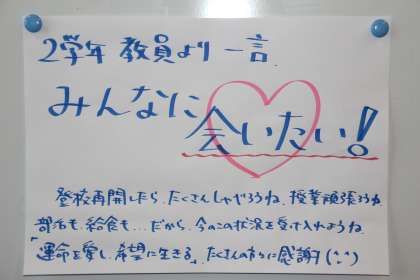 2学年 教員より 一言
みんなに
会いたい!
登校再開したら、たくさんしゃべろうね、授業頑張ろうね、
部活も、給食も…だから、今のこの状況を受け入れようね。
「運命を愛し、希望に生きる」たくさんの方々に感謝(:')